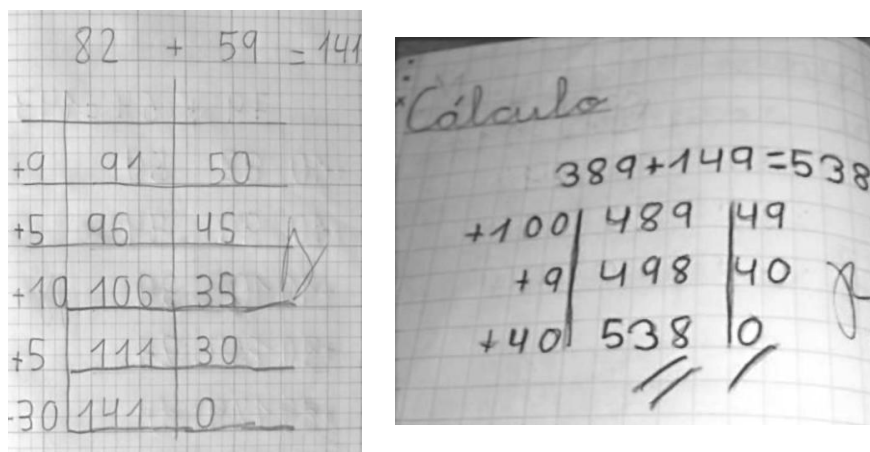 82 + 59 = 141
+9 91 50
+5 96 45
+10 106 35
+5 111 30
-30 141 0
Cálculo
389+149=538
+100 489 49
+9 498 40
+40 538 0